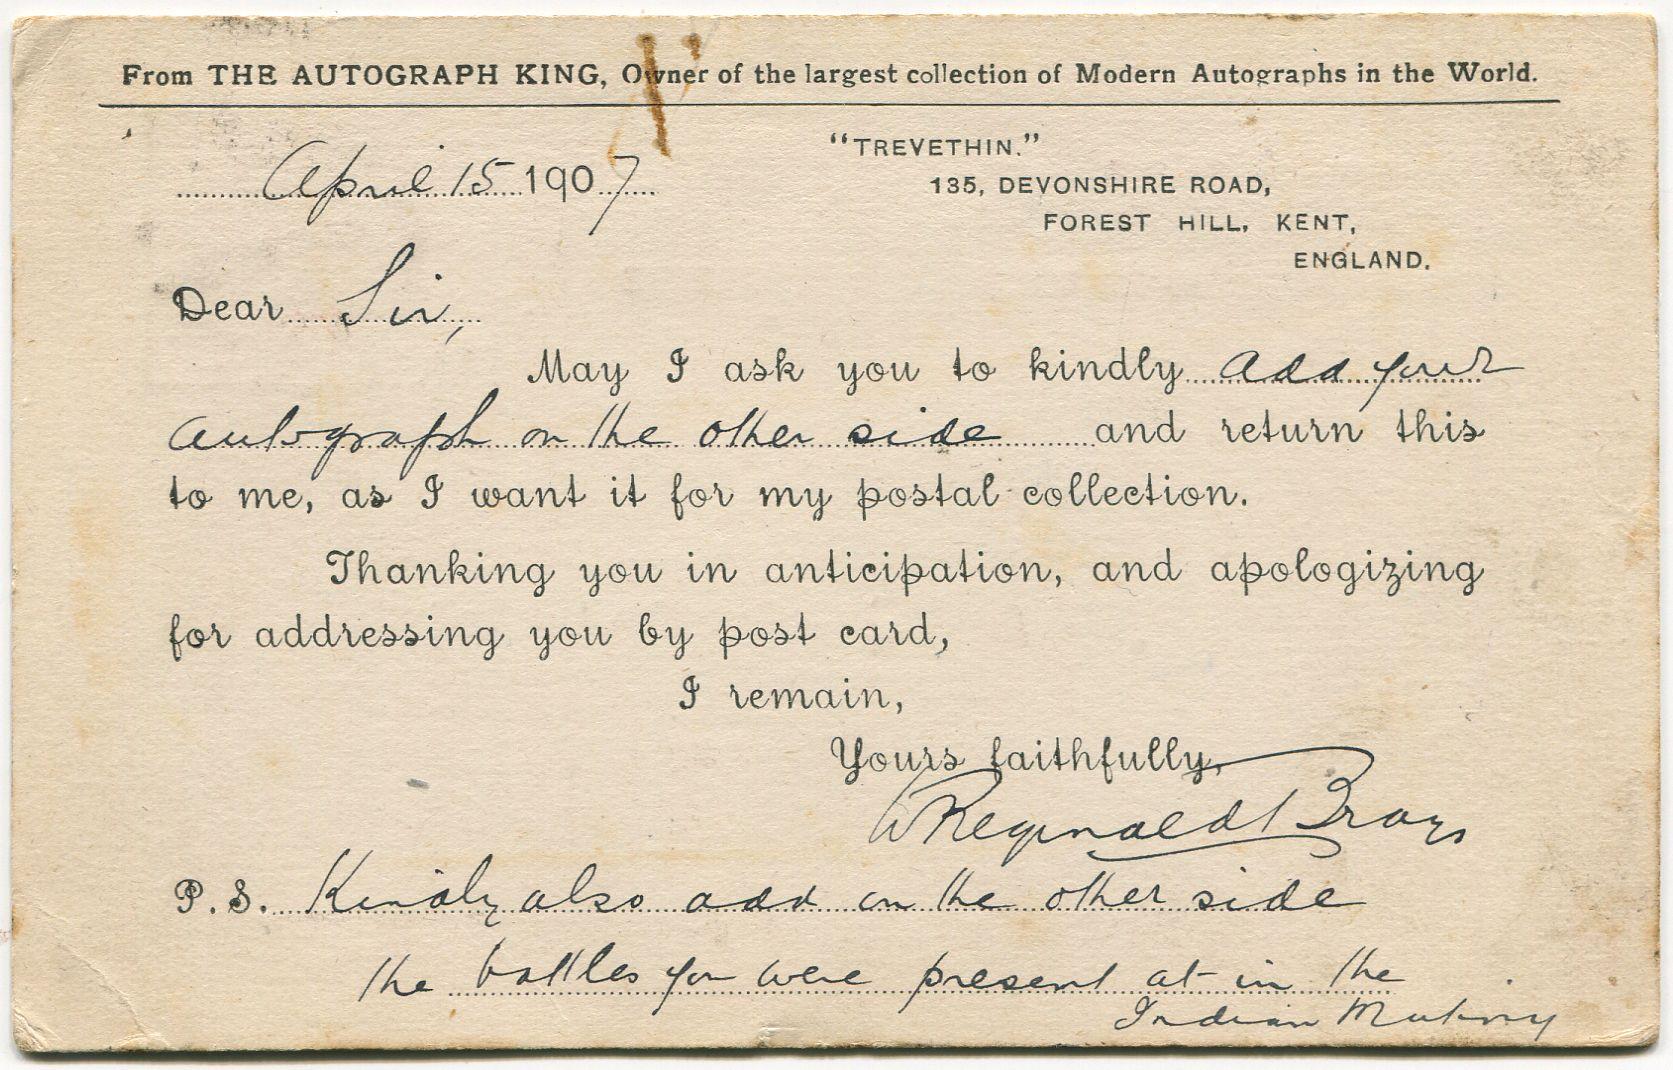 From THE AUTOGRAPH KING, Owner of the largest collection of Modern Autographs in the World.
"TREVETHIN."
April 15 1907
135, DEVONSHIRE ROAD,
FOREST HILL, KENT,
ENGLAND.
Dear Sir,
May I ask you to kindly add your
autograph on the other side and return this
to me, as I want it for my postal collection.
Thanking you in anticipation, and apologizing
for addressing you by post card,
I remain,
Yours faithfully,
W Reginald Bray
P.S. Kindly also add on the other side
the battles you were present at in the
Indian Mutiny